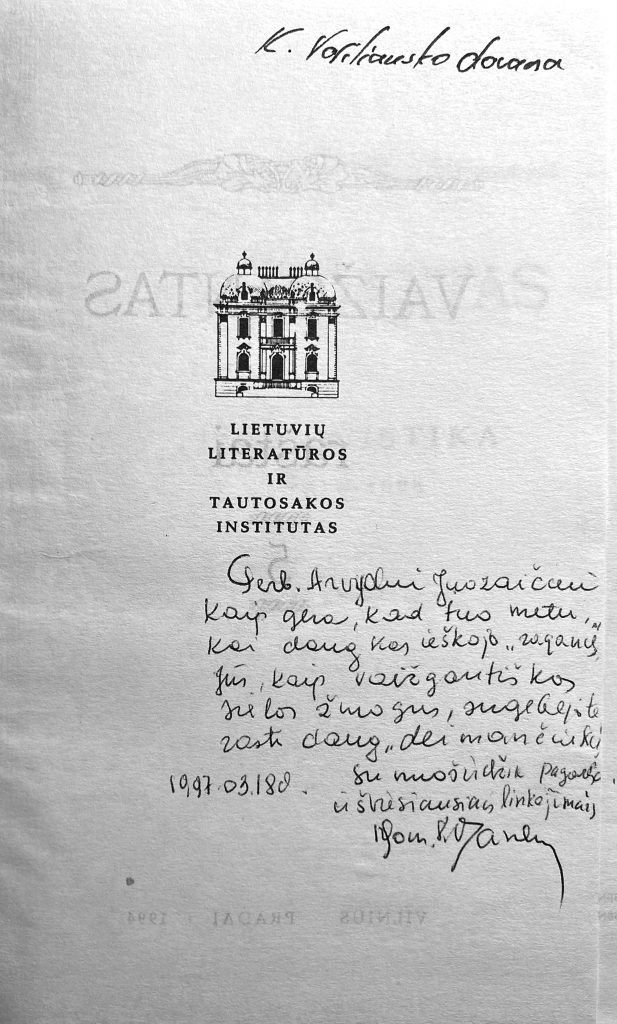 K. Vasiliausko dovana
LIETUVIŲ
LITERATŪROS
IR
TAUTOSAKOS
INSTITUTAS
Gerb. Arvydui Juozaičiui
kaip gera, kad tuo metu,
kai daug kas ieškojo „raganų“,
Jūs, kaip vaižgantiškos
sielos žmogus, sugebėjote
rasti daug „deimančiukų“
su nuoširdžia pagarba
1997.03.18d.
ir šviesiausiais linkėjimais
VAIŽGANTAS
raštai
5
VILNIUS PRADAI 1994